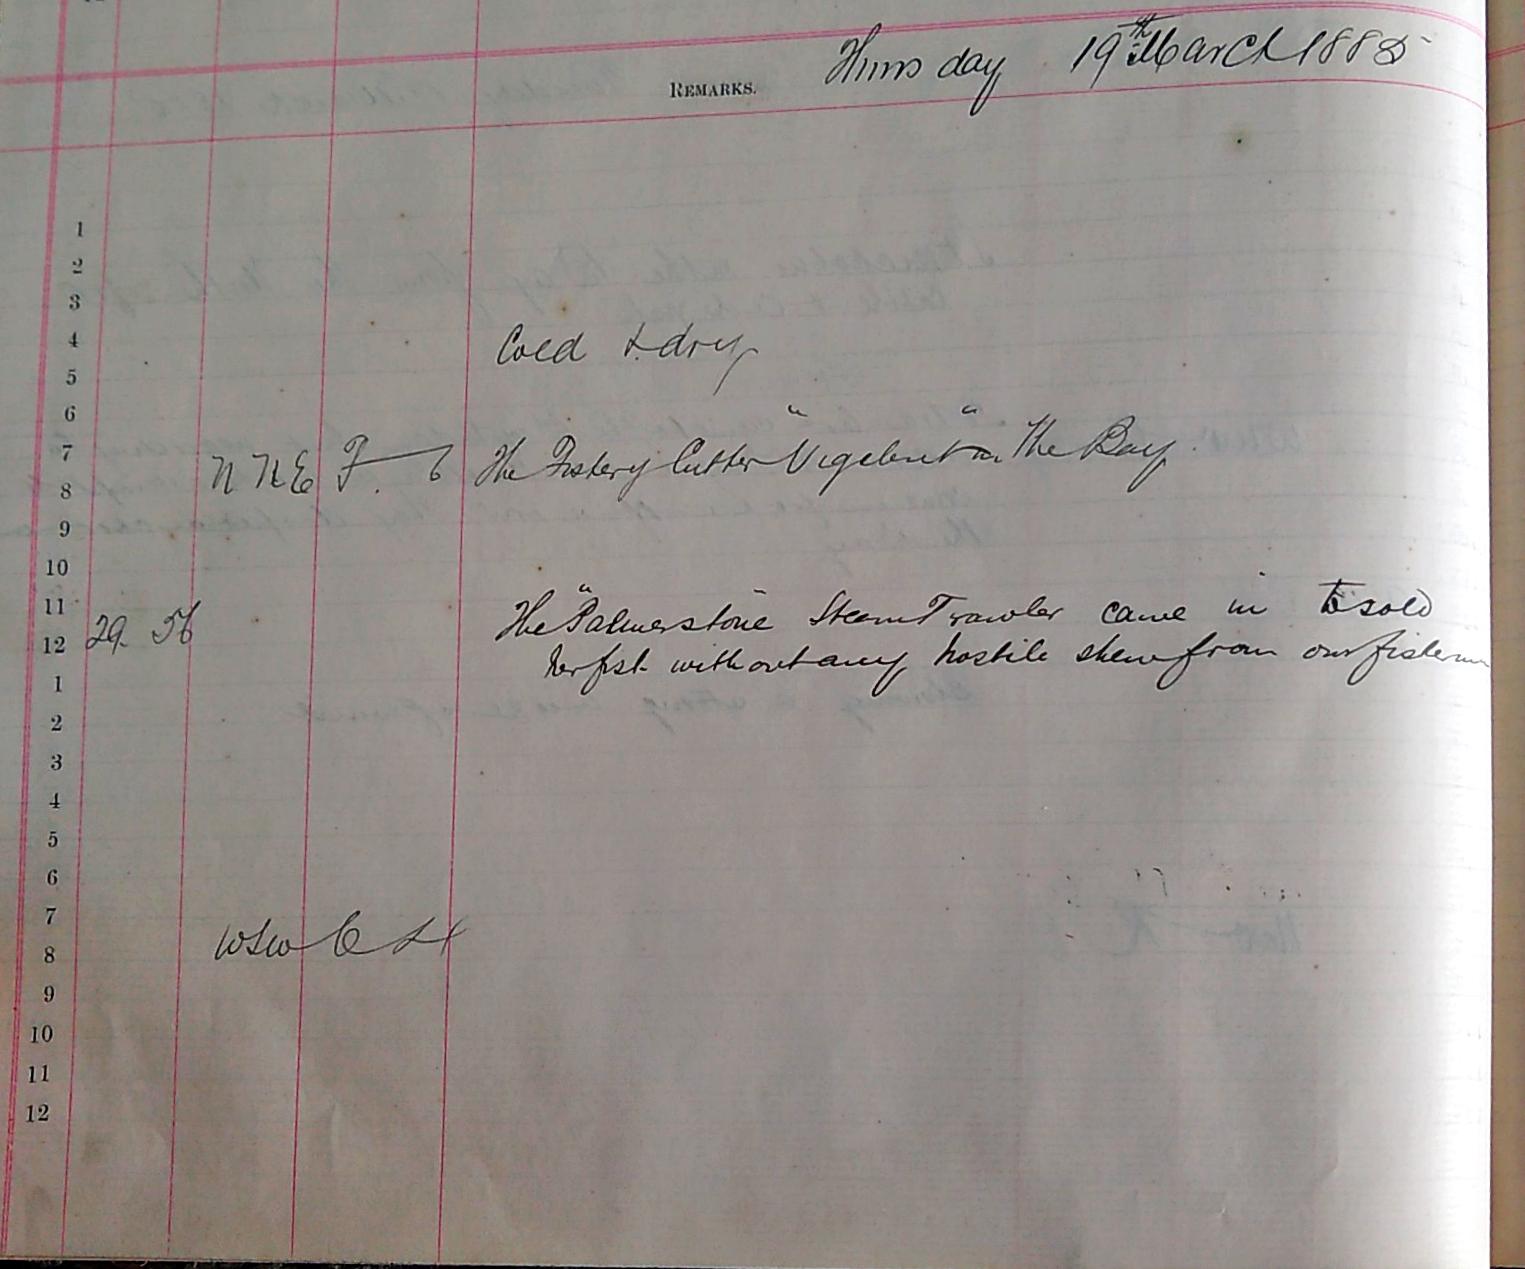 Thursday 19th March 1885
REMARKS.
1
2
3
4 Cold & dry
5
6
7
8 NNE F. 6 The Fishery Cutter "Vigelent" in the Bay.
9
10
11
12 29. 56 The "Palmerstone" Steam Trawler came in to sold
her fish without any hostile shew from our fishermen
1
2
3
4
5
6
7
8 WSW C
9
10
11
12